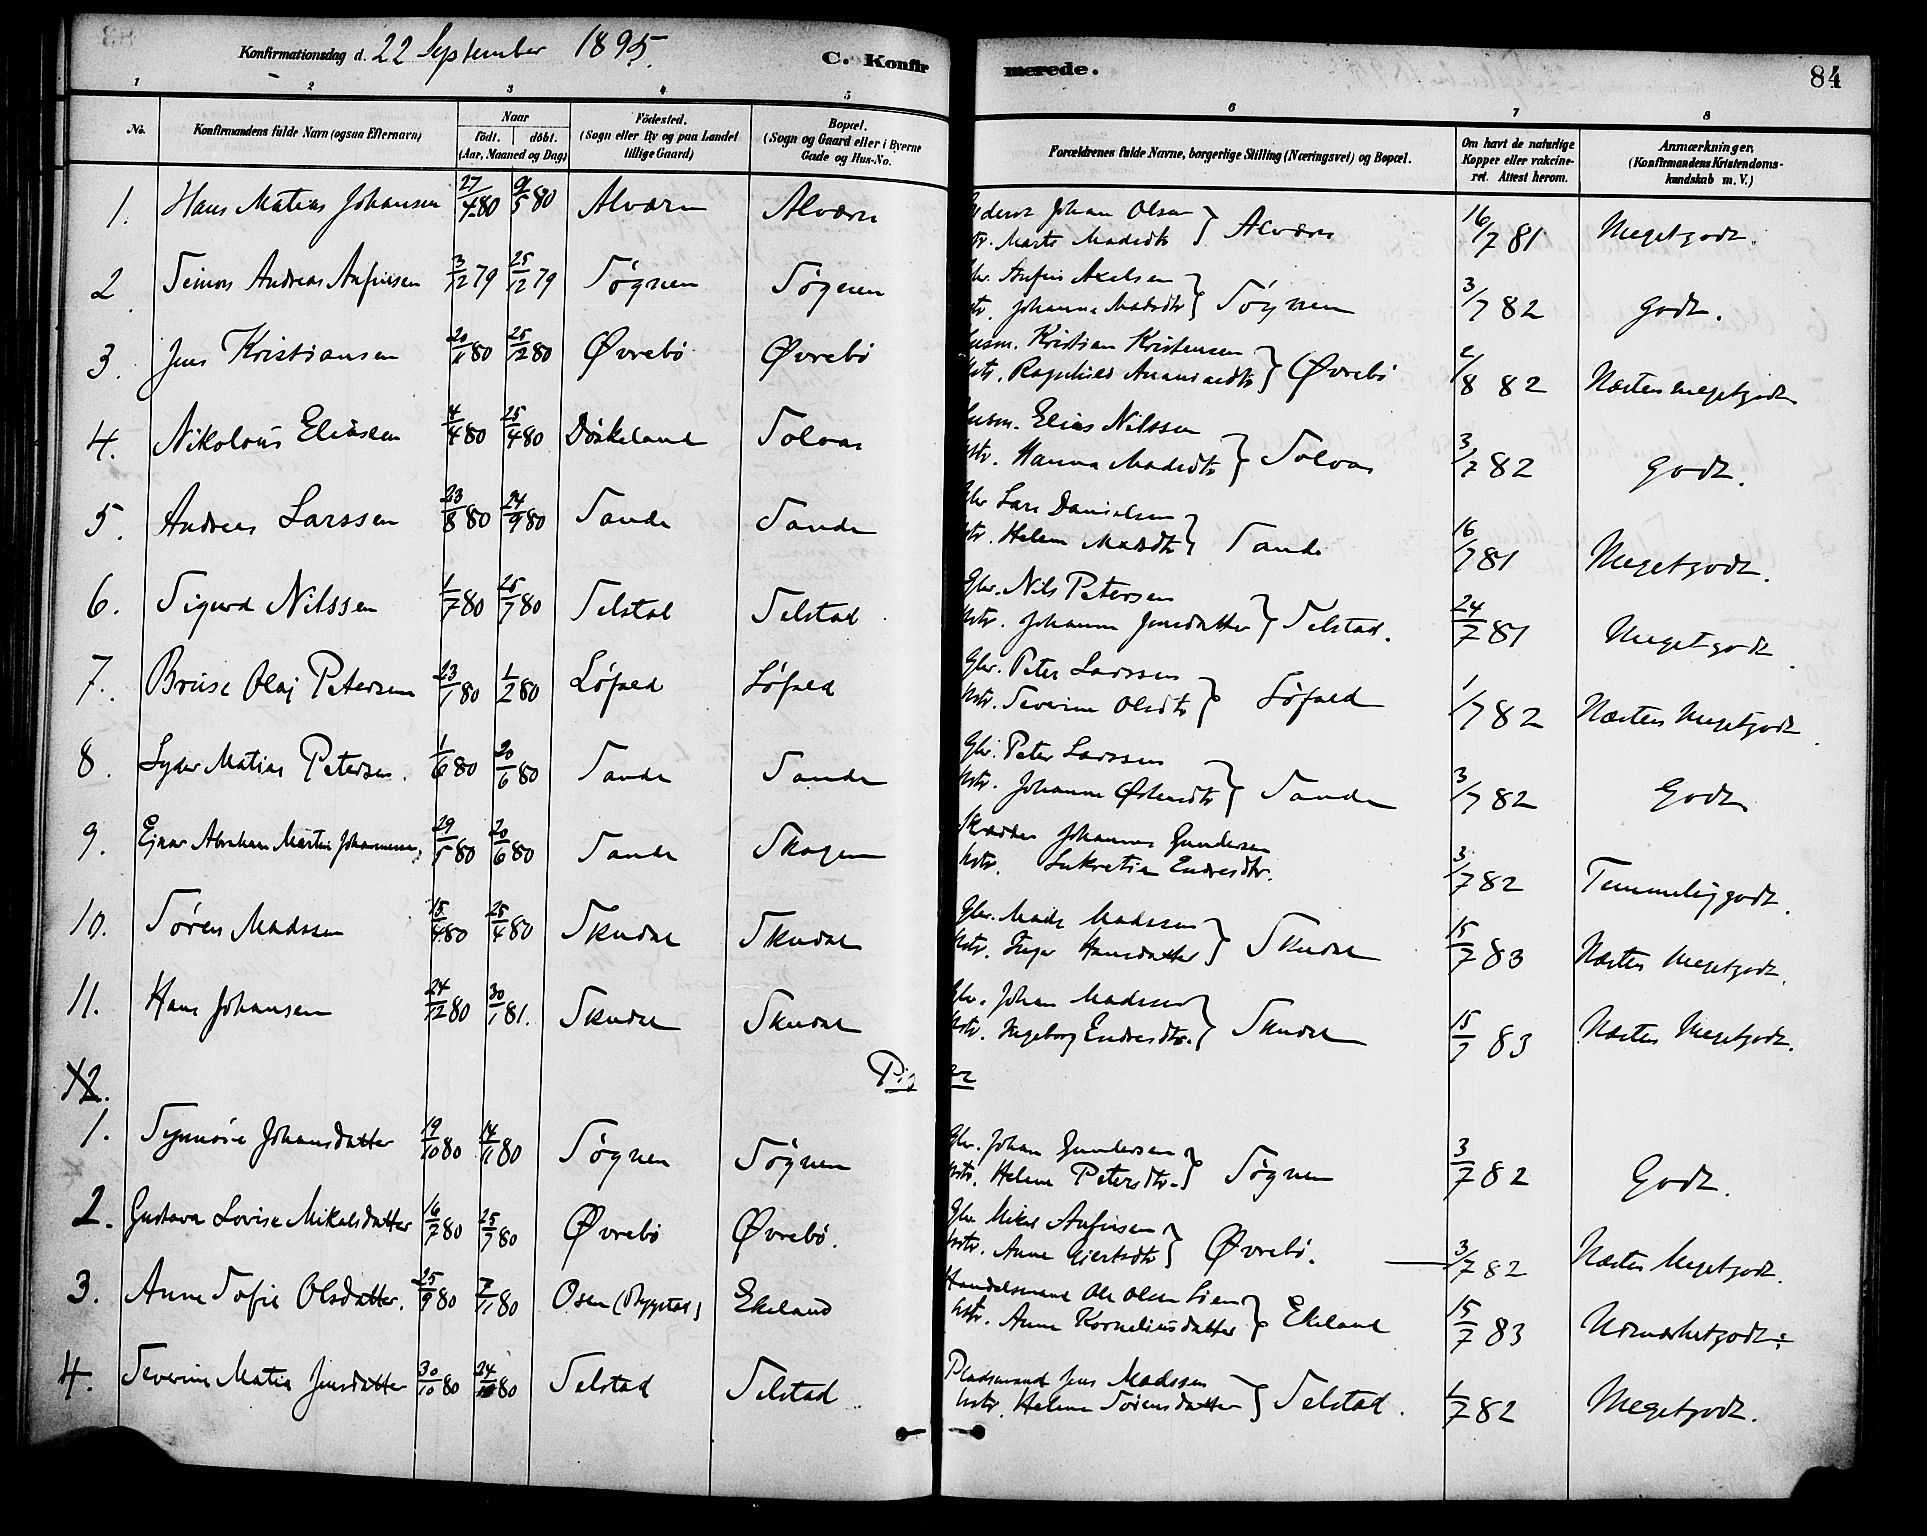 Konfirmationsdag d. 22 September 1895.
C. Konfirmerede.
84
1 2 3 4 5 6 7 8
No. Konfirmandens fulde Navn (ogsaa Efternavn) Naar födt. döbt. (Aar, Maaned og Dag) Födested. (Sogn eller By og paa Landet tillige Gaard) Bopæl. (Sogn og Gaard eller i Byerne Gade og Hus-No. Forældrenes fulde Navne, borgerlige Stilling (Næringsvei) og Bopæl. Om havt de naturlige Kopper eller vakcineret. Attest herom. Anmærkninger. (Konfirmandens Kristendomskundskab m. V.)
1. Hans Matias Johansen 27/4 80 9/5 80 Alværn Alværn Johan Olsen
Marte Madsdtr } Alværn 16/7 81 Megetgodt.
2. Simon Andreas Anfinsen 3/12 79 25/12 79 Søgnen Søgnen Anfin Axelsen
Johanna Madsdtr } Søgnen 3/7 82 godt.
3. Jens Kristiansen 20/11 80 25/12 80 Øvrebö Øvrebö Husm. Kristian Kristensen
Hstr. Ragnhild } Øvrebö 2/8 82 Næsten megetgodt
4. Nikolaus Eliasen 4/4 80 25/4 80 Döskeland Solvar Husm. Elias Nilssen
Hstr. Hanna Madsdtr } Solvar 3/7 82 godt.
5. Andreas Larssen 23/8 80 24/9 80 Sande Sande Gbr Lars Danielsen
Hstr. Helene Madsdtr } Sande 16/7 81 Megetgodt.
6. Sigurd Nilssen 1/7 80 25/7 80 Selstad Selstad Gbr. Nils Petersen
Hstr. Johanne Jensdatter } Selstad. 24/7 81 Megetgodt.
7. Bruse Olaj Petersen 23/1 80 1/2 80 Löfald Löfald Gbr. Peter Larssen
Hstr. Severine Olsdtr } Löfald 1/7 82 Næsten Megetgodt.
8. Lyder Matias Petersen. 1/6 80 20/6 80 Sande Sande Gbr. Peter Larssen
Hstr. Johanne } Sande 3/7 82 Godt
9. Ejnar Abraham Martin Johannesen 29/5 80 20/6 80 Sande Skogen Skrædder Johannes Gundersen
Hstr. Lukretia Endresdtr. 3/7 82 Temmeliggodt.
10. Sören Madssen 15/4 80 25/4 80 Skudal Skudal Gbr. Mads Madssen
Hstr. Inger Hansdatter } Skudal 15/7 83 Næsten Megetgodt.
11. Hans Johansen 24/12 80 30/1 81. Skudal Skudal Gbr. Johan Madssen
Hstr. Ingeborg Endresdtr. } Skudal 15/7 83 Næsten Megetgodt.
12. Piger
1. Synnöve Johansdatter 19/10 80 14/11 80 Søgnen Søgnen Gbr. Johan Gundersen
Hstr. Helene Petersdtr. } Søgnen 3/7 82 Godt.
2. Gustava Lovise Mikalsdatter 16/7 80 25/7 80 Øvrebö Øvrebö. Gbr Mikal Anfinsen
Hstr. Anne Giertsdtr } Øvrebö. 3/7 82 Næsten Megetgodt.
3. Anne Sofie Olsdatter. 25/9 80 7/11 80 Osen (Bygstad) Ekeland Handelsmand Ole Olsen
hstr. Anne Korneliusdatter } Ekeland 15/7 83 Udmærketgodt÷
4. Severine Matia Jensdatter 30/10 80 24/10 80 Selstad Selstad Pladsmand Jens Madssen
hstr. Helene Sörensdatter } Selstad. 1/7 82 Megetgodt.